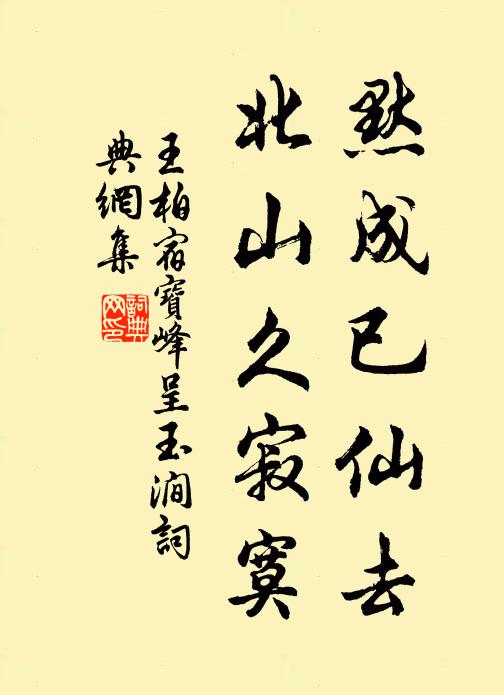 默成已仙去
北山久寂寞
王柏宿寶峰呈玉澗詞
典網集
詞典
网印